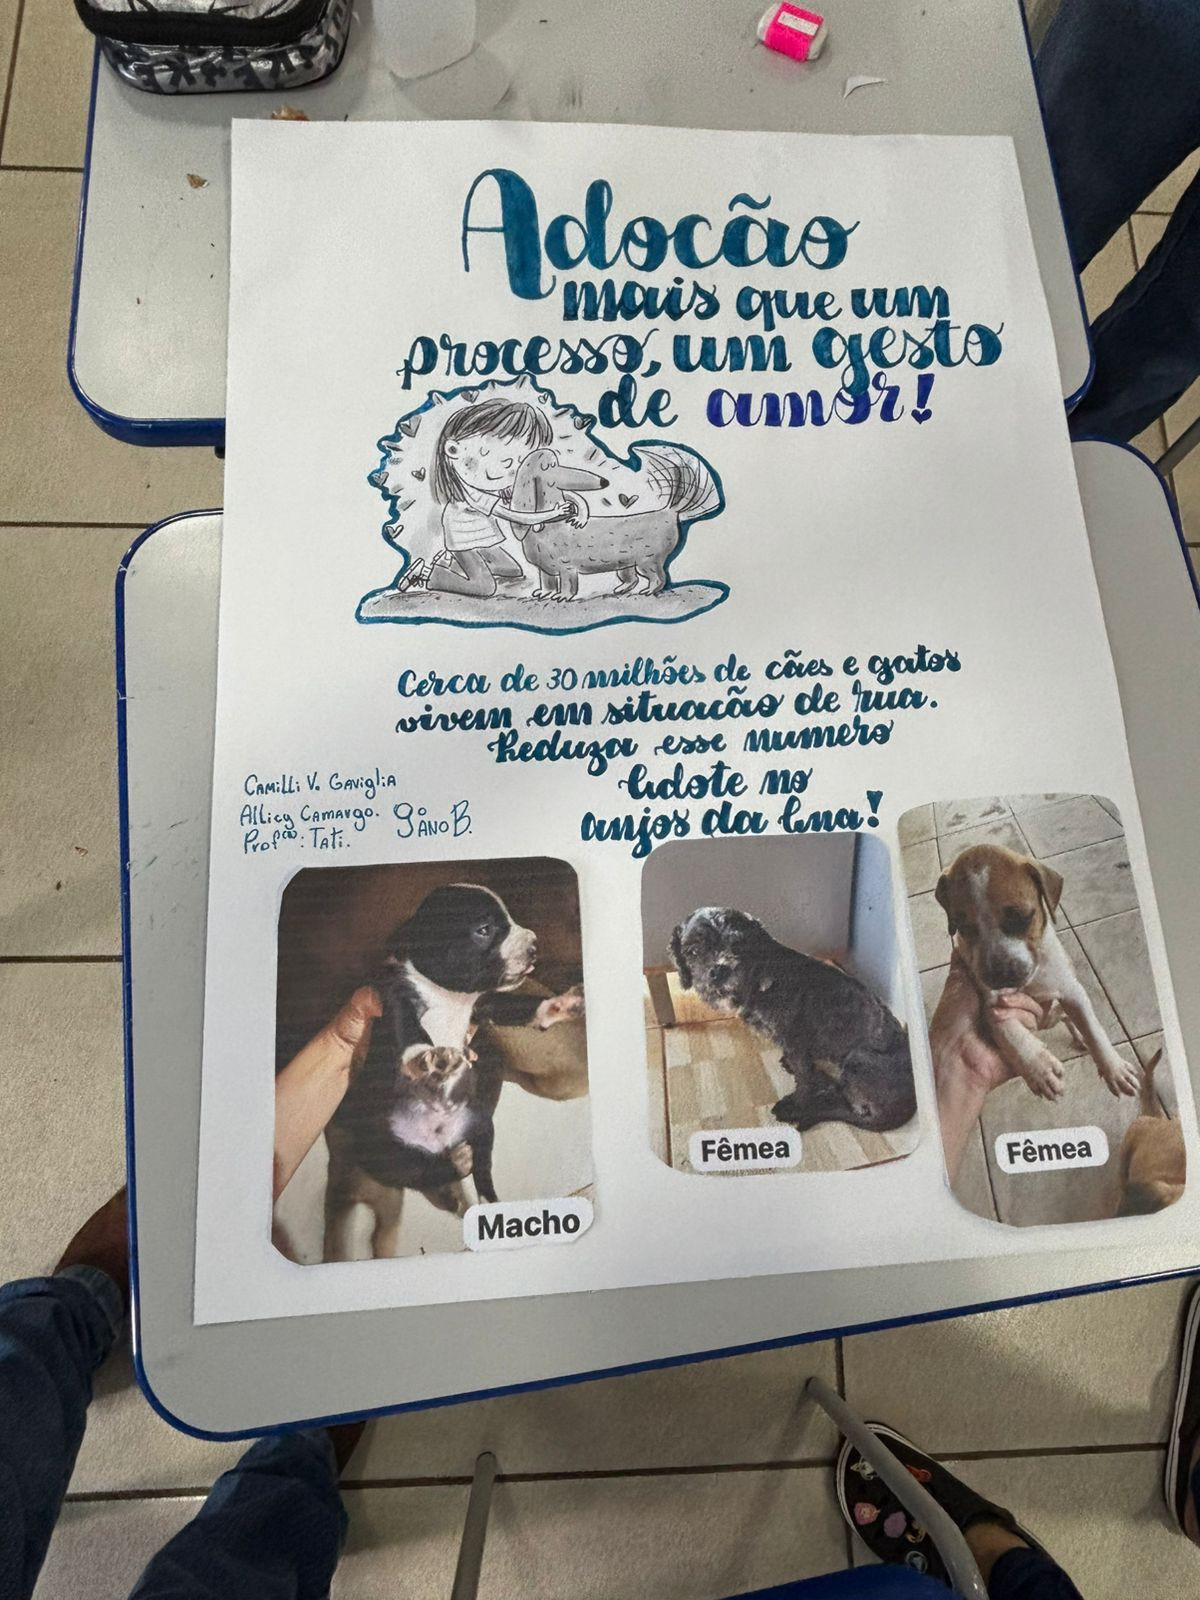 Adocão
mais que um
processo, um gesto
de amor!
Cerca de 30 milhões de cães e gatos
vivem em situacão de rua.
Reduza esse numero
Adote no
anjos da lua!
Camilli V. Gaviglia
Allicy Camargo. 9º ANO B.
Profª: Tati.
Macho
Fêmea
Fêmea